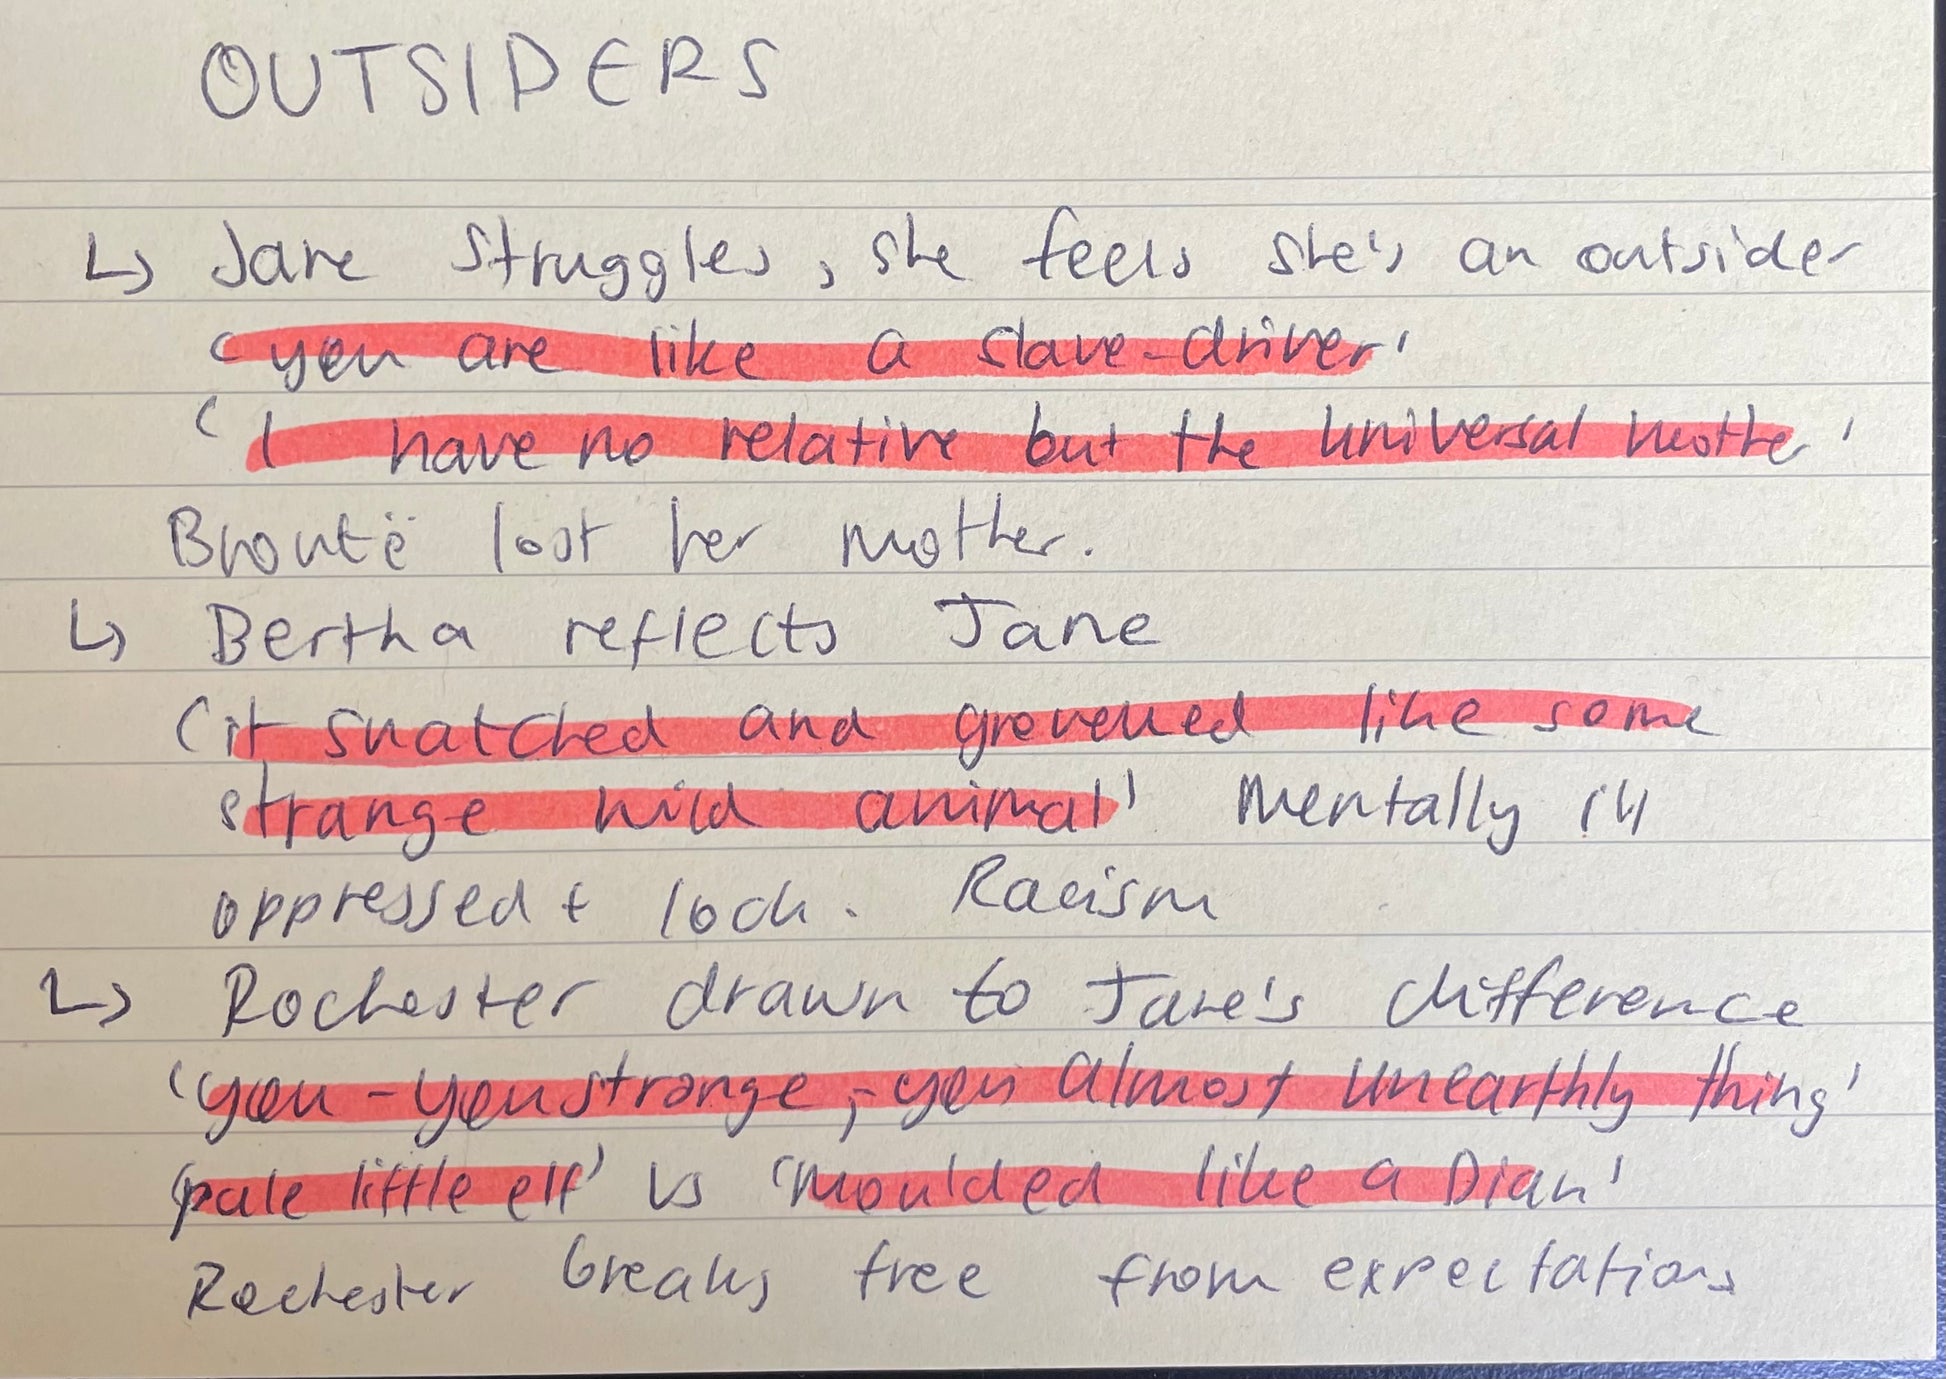 OUTSIDERS
↳ Jane struggles, she feels she's an outsider
'you are like a slave-driver'
'I have no relative but the universal mother'
Brontë lost her mother.
↳ Bertha reflects Jane
'it snatched and grovelled like some
strange wild animal' Mentally ill
oppressed + lock. Racism
↳ Rochester drawn to Jane's difference
'you - you strange, - you almost unearthly thing'
'pale little elf' vs 'moulded like a Dian'
Rochester breaks free from expectations